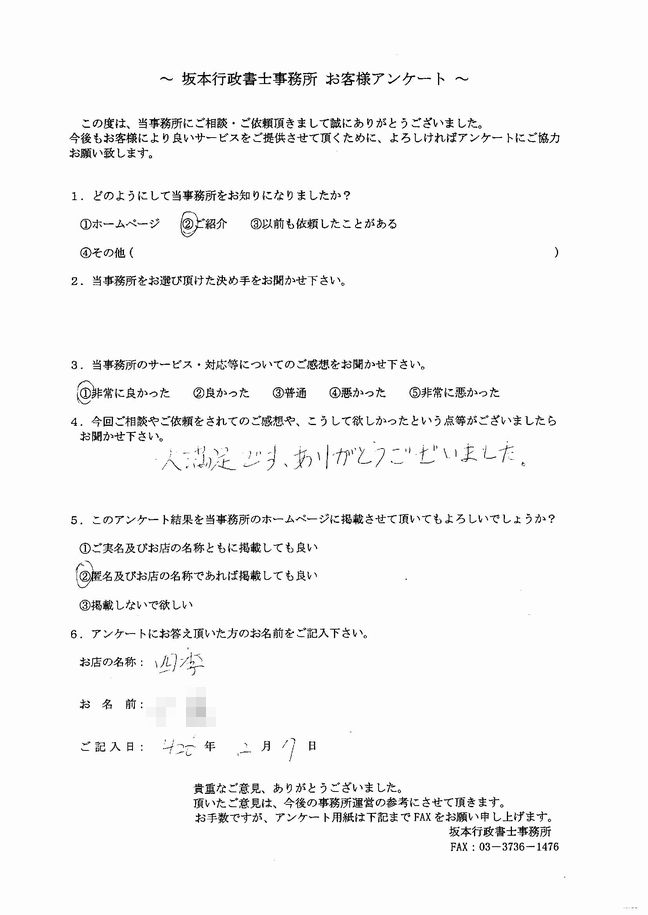 ～ 坂本行政書士事務所 お客様アンケート ～
この度は、当事務所にご相談・ご依頼頂きまして誠にありがとうございました。
今後もお客様により良いサービスをご提供させて頂くために、よろしければアンケートにご協力
お願い致します。
１．どのようにして当事務所をお知りになりましたか？
①ホームページ ②ご紹介 ③以前も依頼したことがある
④その他（ ）
２．当事務所をお選び頂けた決め手をお聞かせ下さい。
３．当事務所のサービス・対応等についてのご感想をお聞かせ下さい。
①非常に良かった ②良かった ③普通 ④悪かった ⑤非常に悪かった
４．今回ご相談やご依頼をされてのご感想や、こうして欲しかったという点等がございましたら
お聞かせ下さい。
大満足です、ありがとうございました。
５．このアンケート結果を当事務所のホームページに掲載させて頂いてもよろしいでしょうか？
①ご実名及びお店の名称ともに掲載しても良い
②匿名及びお店の名称であれば掲載しても良い
③掲載しないで欲しい
６．アンケートにお答え頂いた方のお名前をご記入下さい。
お店の名称： 四季
お 名 前：
ご記入日： 年 2 月 17 日
貴重なご意見、ありがとうございました。
頂いたご意見は、今後の事務所運営の参考にさせて頂きます。
お手数ですが、アンケート用紙は下記まで FAX をお願い申し上げます。
坂本行政書士事務所
FAX：03－3736－1476